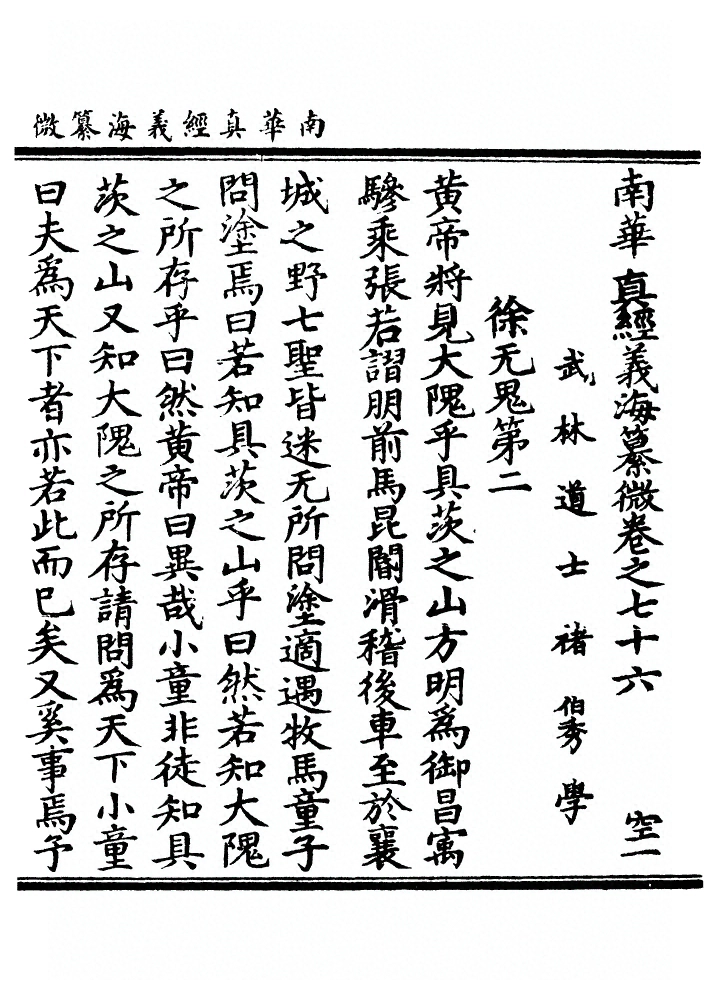 南華真經義海纂微
南華真經義海纂微卷之七十六　空一
武林道士褚伯秀學
徐无鬼第二
黃帝將見大隗乎具茨之山方明為御昌㝢
驂乘張若謵朋前馬昆閽滑稽後車至於襄
城之野七聖皆迷无所問塗適遇牧馬童子
問塗焉曰若知具茨之山乎曰然若知大隗
之所存乎曰然黃帝曰異哉小童非徒知具
茨之山又知大隗之所存請問為天下小童
曰夫為天下者亦若此而已矣又奚事焉予